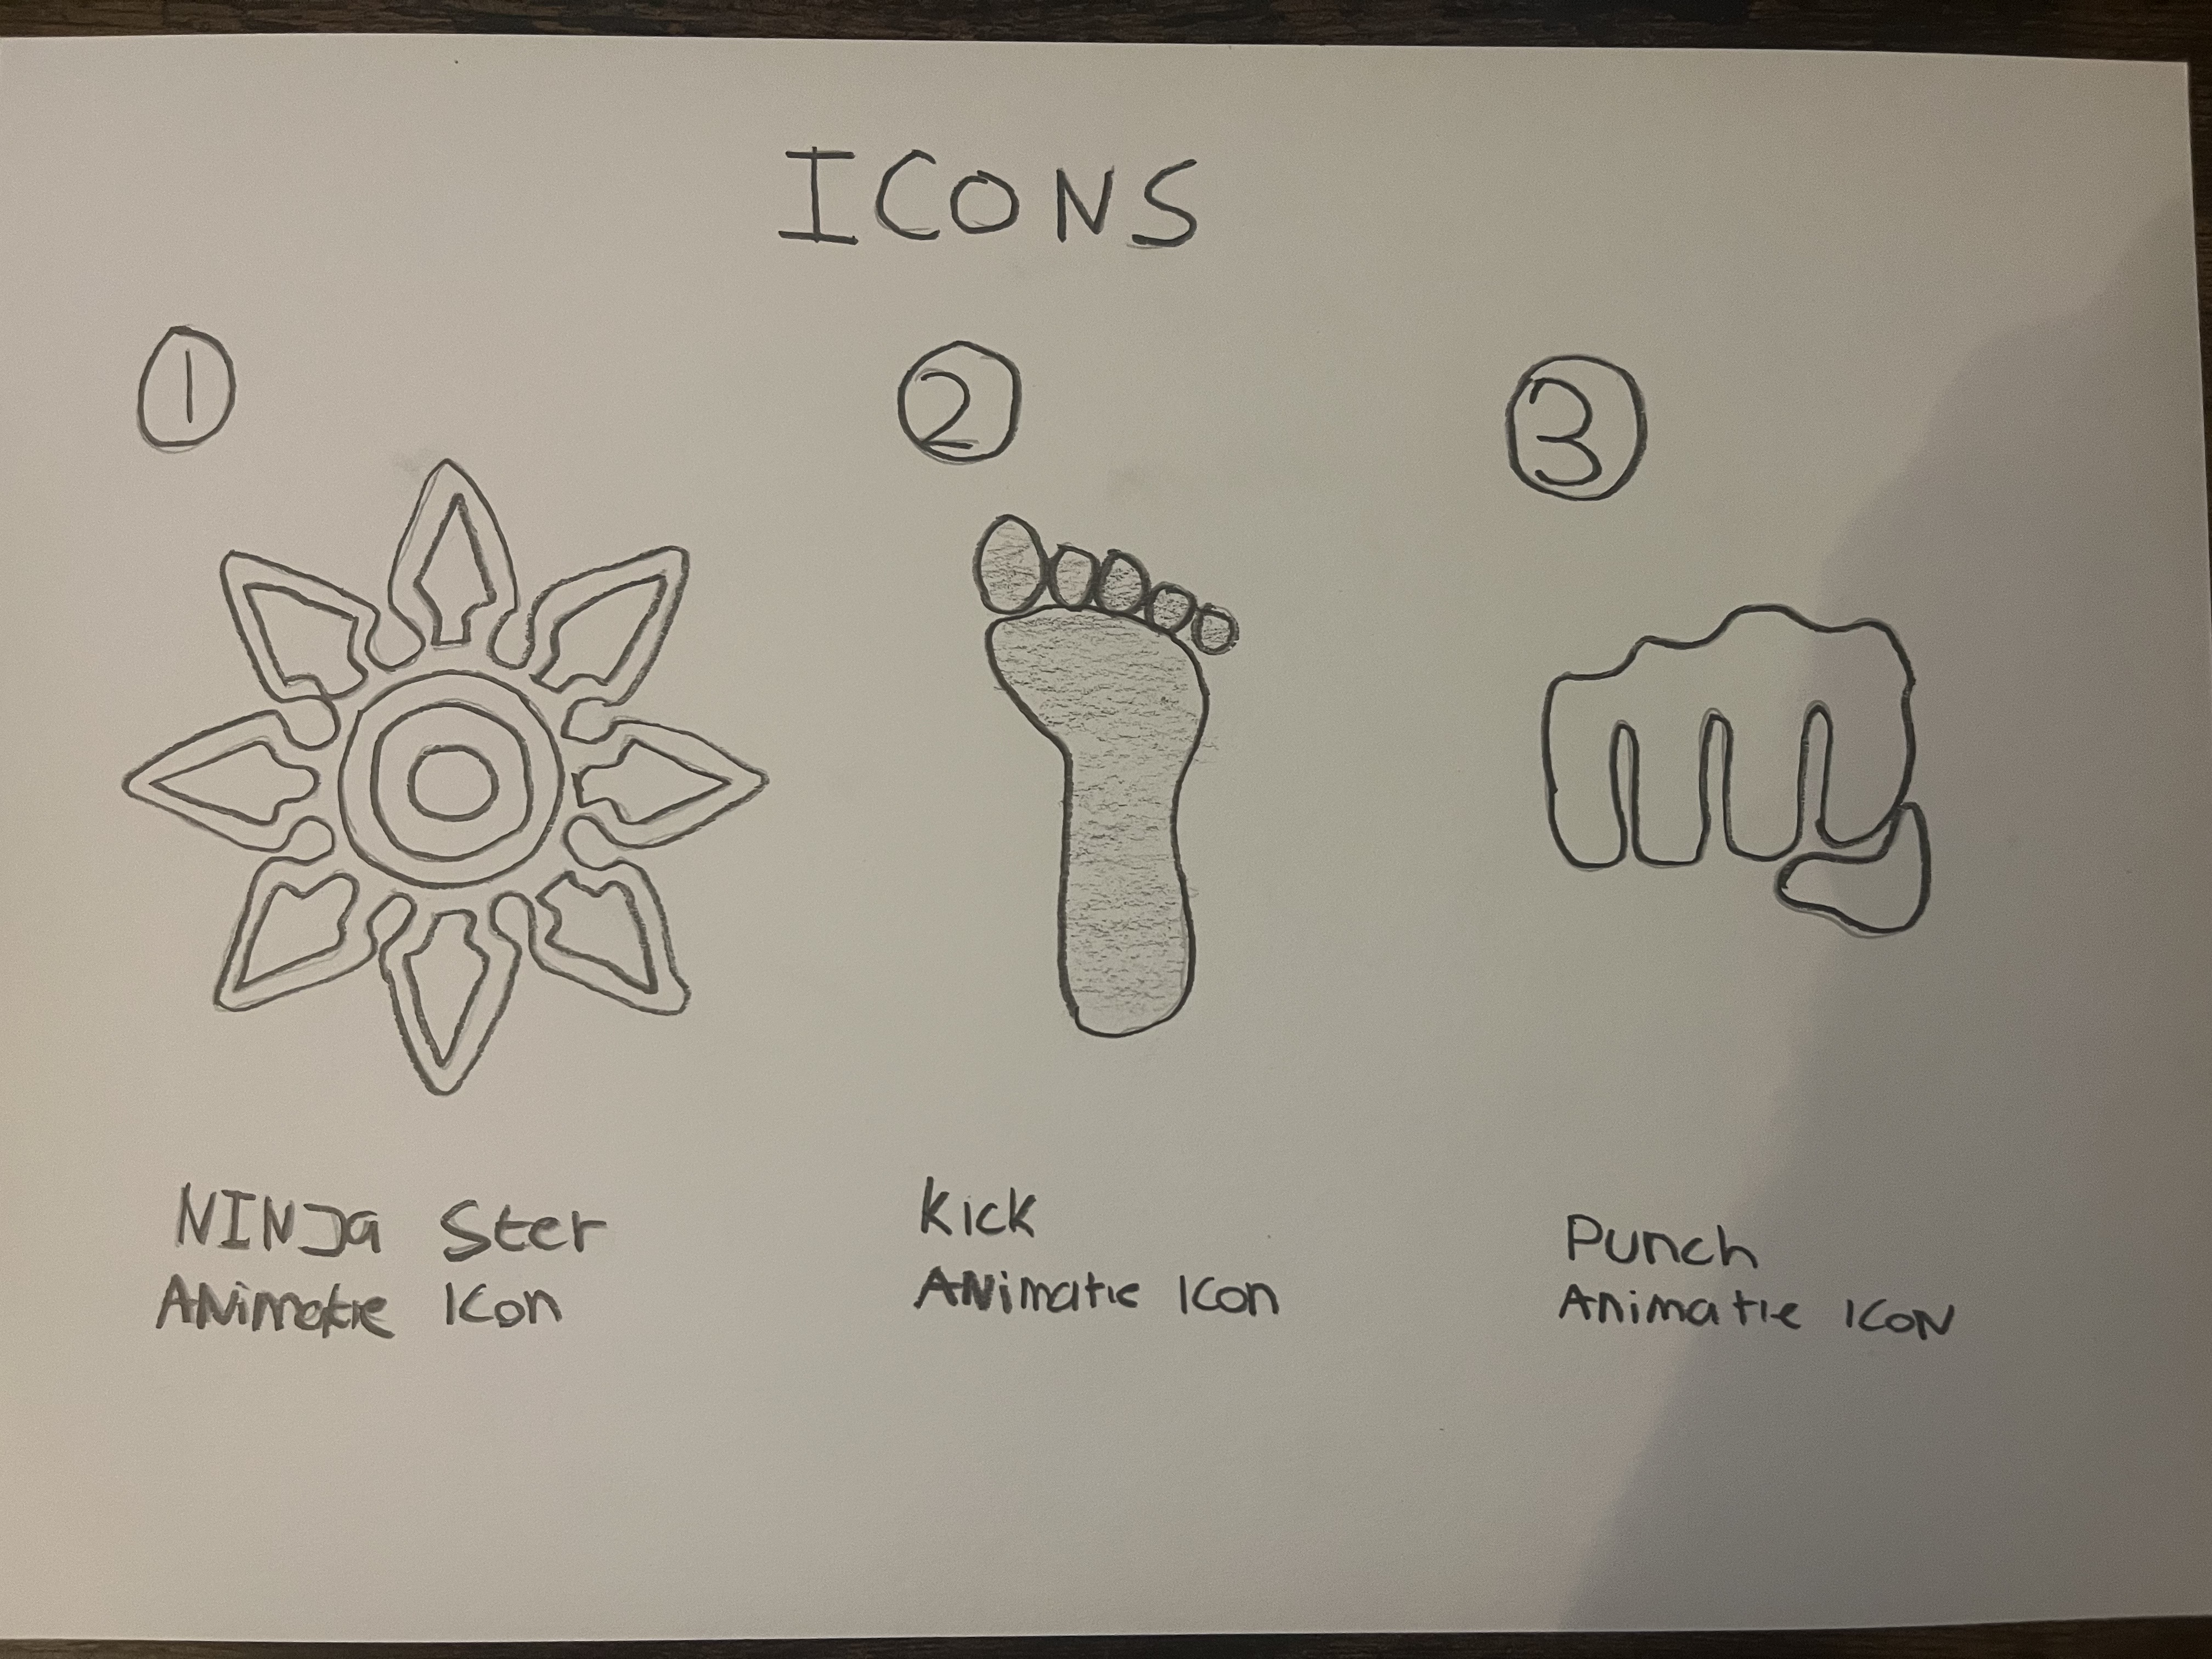 ICONS
1
2
3
NINJa Ster
ANimatie Icon
Kick
ANimatie Icon
Punch
Animatie ICON